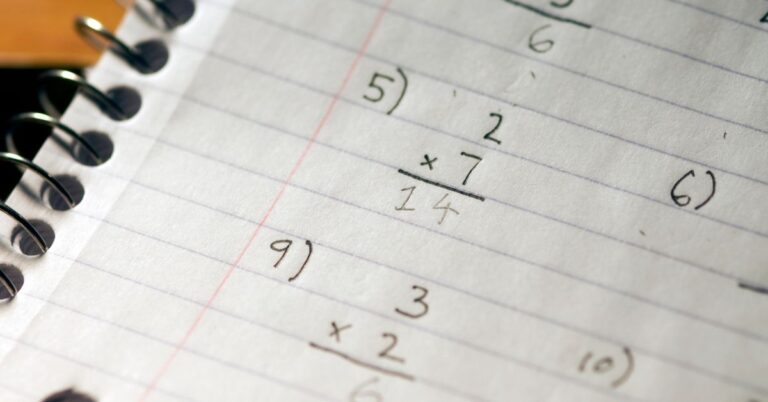 6
5) 2
× 7
14
6)
9) 3
× 2
6
10)